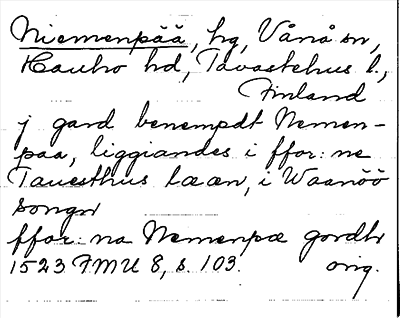 Niemenpää, hg, Vånå sn,
Hauho hd, Tavastehus l.,
Finland
j gard benempdt Nemen-
paa, liggiandes i ffor: ne
Tauesthus læen, i Waanöö
songn
ffor: na Nemenpæ gordh
1523 FMU 8, s. 103. orig.